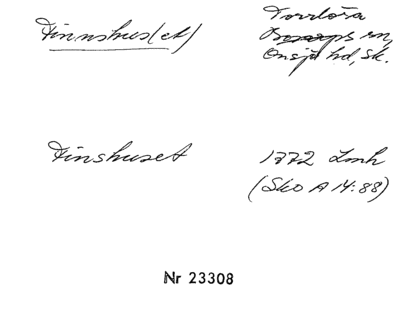 Finnshus(et)
Torrlösa
Bosarps sn,
Onsjö hd, Sk.
Finshuset
1772 Lmh
(Sko A 14:88)
Nr 23308